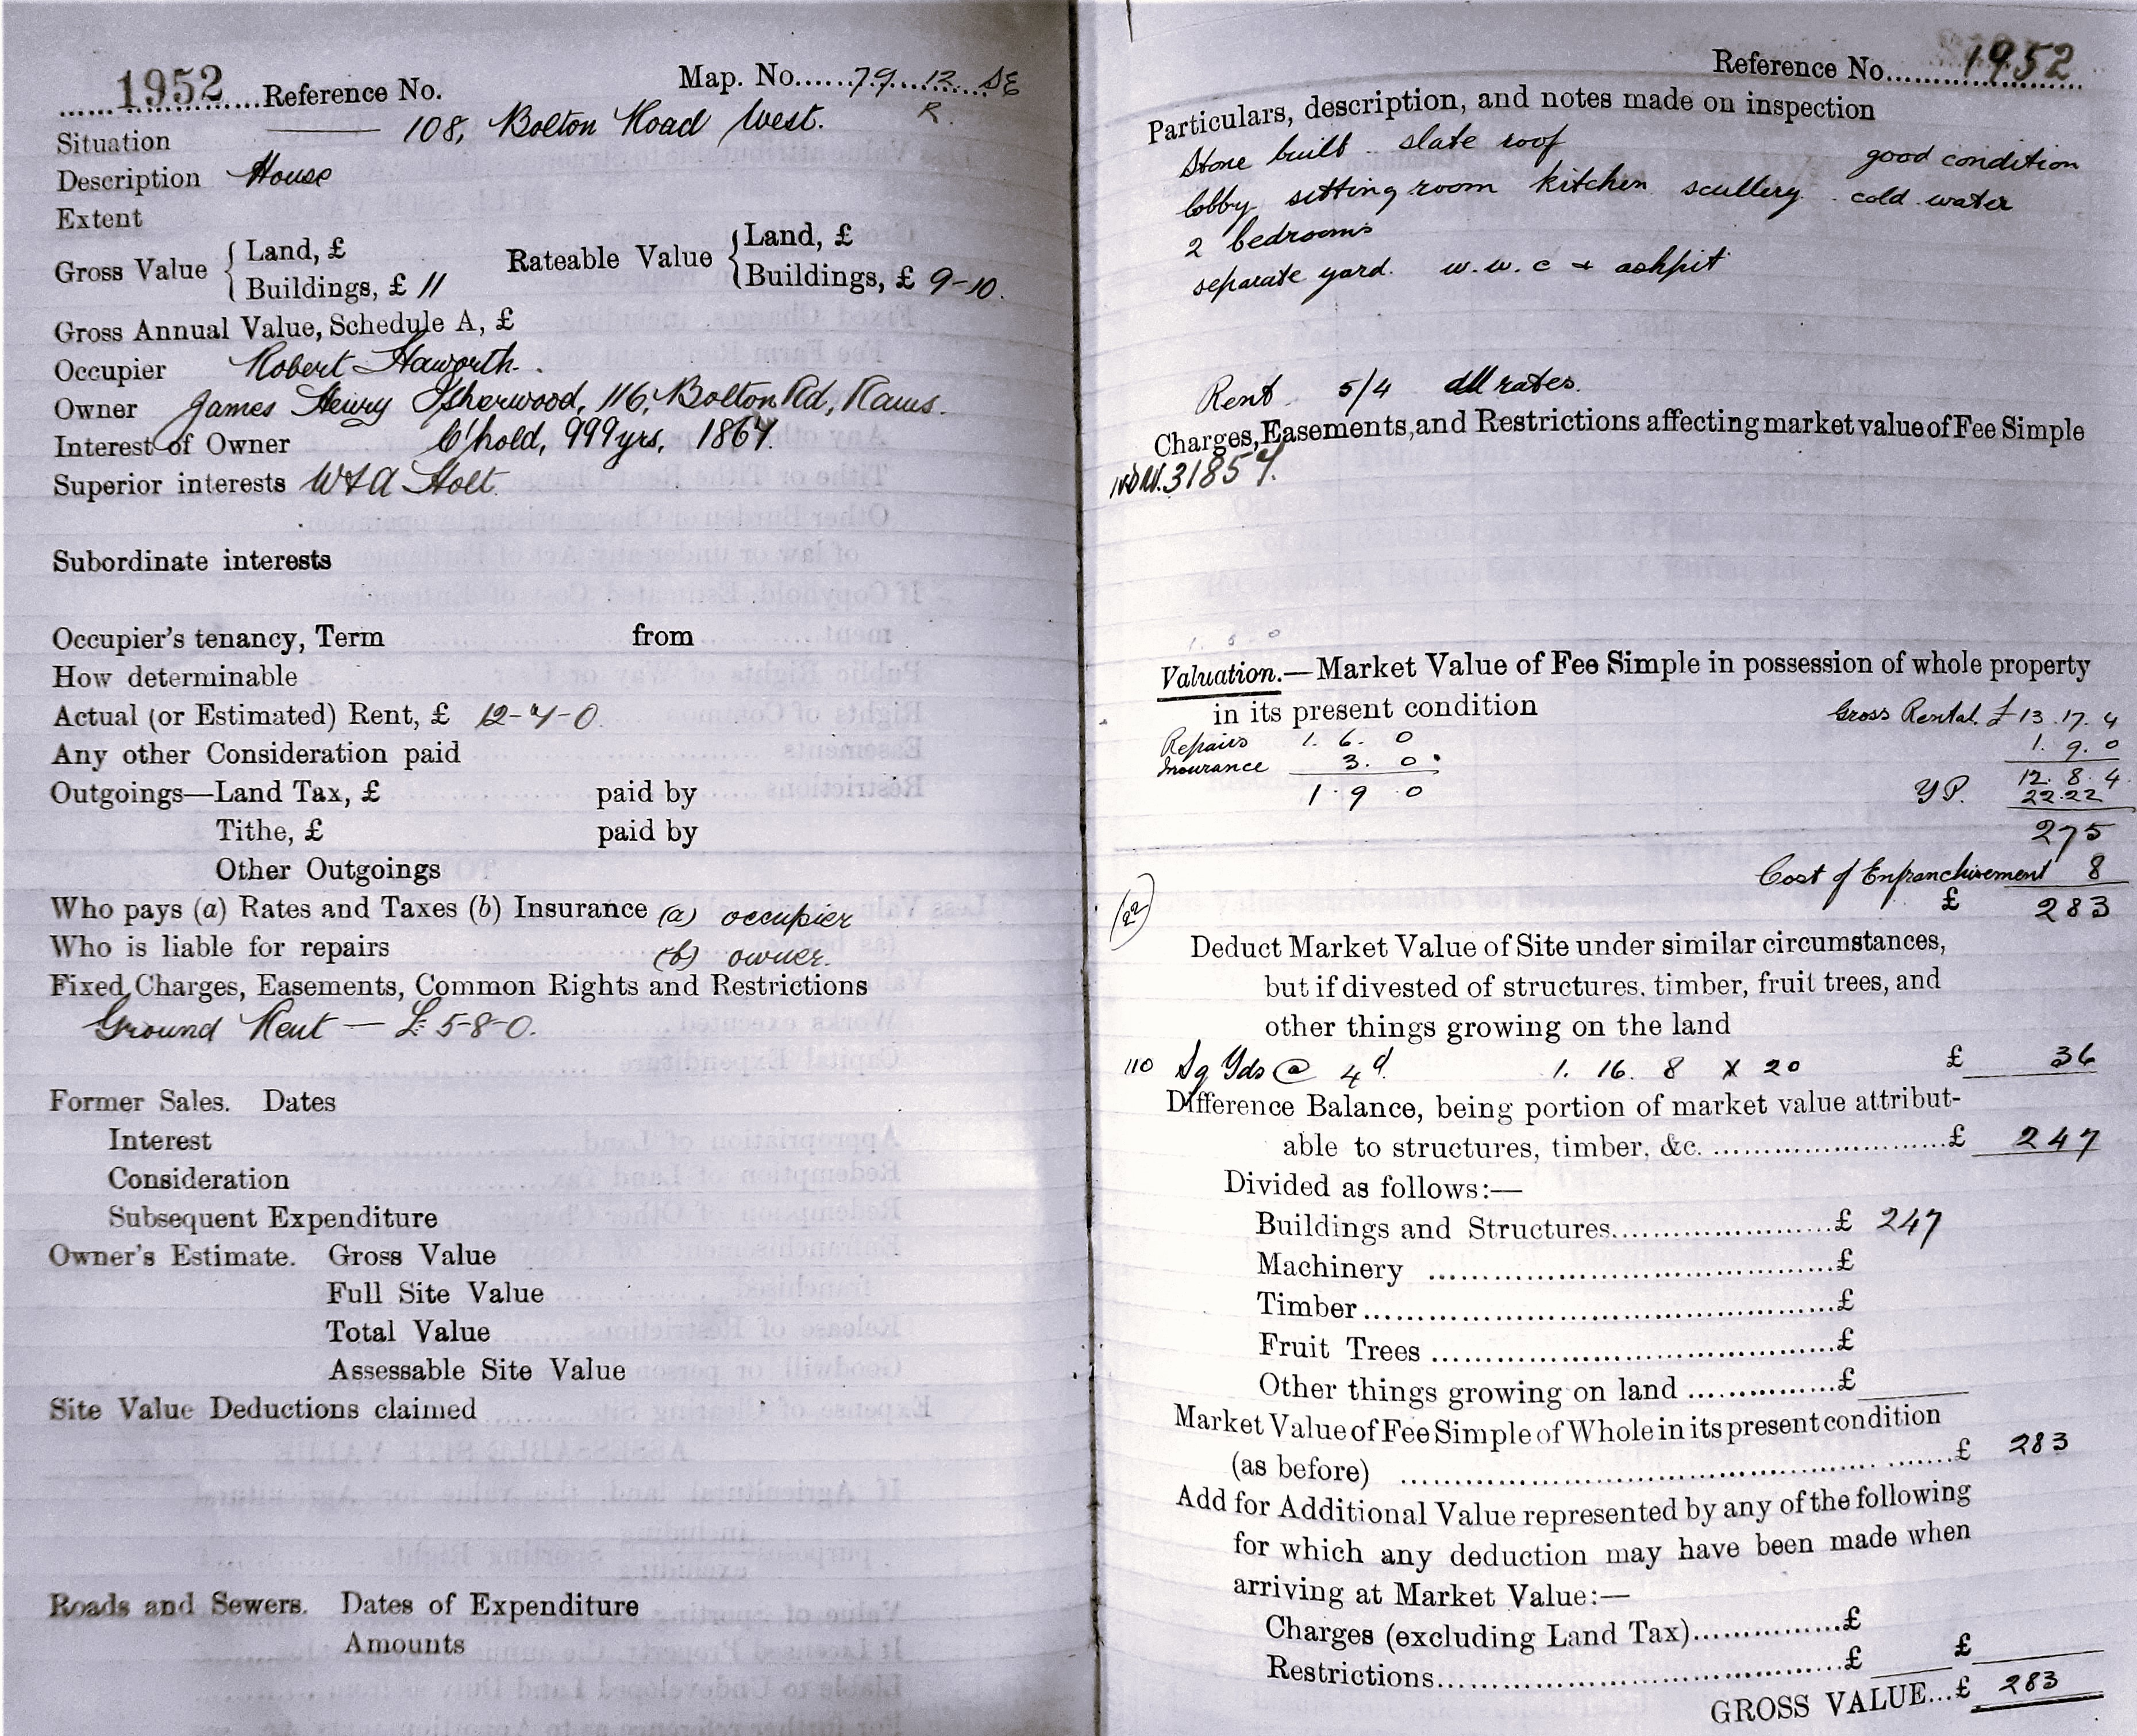 1952 Reference No. Map. No. 79. 12. SE
R.
Situation 108, Bolton Road West.
Description House
Extent
Gross Value { Land, £
Buildings, £ 11
Rateable Value { Land, £
Buildings, £ 9-10.
Gross Annual Value, Schedule A, £
Occupier Robert Haworth.
Owner James Henry Isherwood, 116, Bolton Rd, Rams.
Interest of Owner C'hold, 999 yrs, 1867.
Superior interests W & A Holt
Subordinate interests
Occupier's tenancy, Term from
How determinable
Actual (or Estimated) Rent, £ 12-7-0.
Any other Consideration paid
Outgoings—Land Tax, £ paid by
Tithe, £ paid by
Other Outgoings
Who pays (a) Rates and Taxes (b) Insurance (a) occupier
Who is liable for repairs (b) owner.
Fixed Charges, Easements, Common Rights and Restrictions
Ground Rent — £5-8-0.
Former Sales. Dates
Interest
Consideration
Subsequent Expenditure
Owner's Estimate. Gross Value
Full Site Value
Total Value
Assessable Site Value
Site Value Deductions claimed
Roads and Sewers. Dates of Expenditure
Amounts
Reference No. 1952
Particulars, description, and notes made on inspection
Stone built slate roof good condition
lobby sitting room kitchen scullery cold water
2 bedrooms
separate yard. w.w.c & ashpit
Rent 5/4 all rates.
Charges, Easements, and Restrictions affecting market value of Fee Simple
31857.
1. 8. 0
Valuation.—Market Value of Fee Simple in possession of whole property
in its present condition Gross Rental £13. 17. 4
Repairs 1. 6. 0 1. 9. 0
Insurance 3. 0. 12. 8. 4
1. 9 0 YP. 22.22
275
Cost of Enfranchisement 8
(22) £ 283
Deduct Market Value of Site under similar circumstances,
but if divested of structures, timber, fruit trees, and
other things growing on the land
110 Sq Yds @ 4d. 1. 16. 8 x 20 £ 36
Difference Balance, being portion of market value attribut-
able to structures, timber, &c. £ 247
Divided as follows:—
Buildings and Structures £ 247
Machinery £
Timber £
Fruit Trees £
Other things growing on land £
Market Value of Fee Simple of Whole in its present condition
(as before) £ 283
Add for Additional Value represented by any of the following
for which any deduction may have been made when
arriving at Market Value:—
Charges (excluding Land Tax) £
Restrictions £ £
GROSS VALUE...£ 283